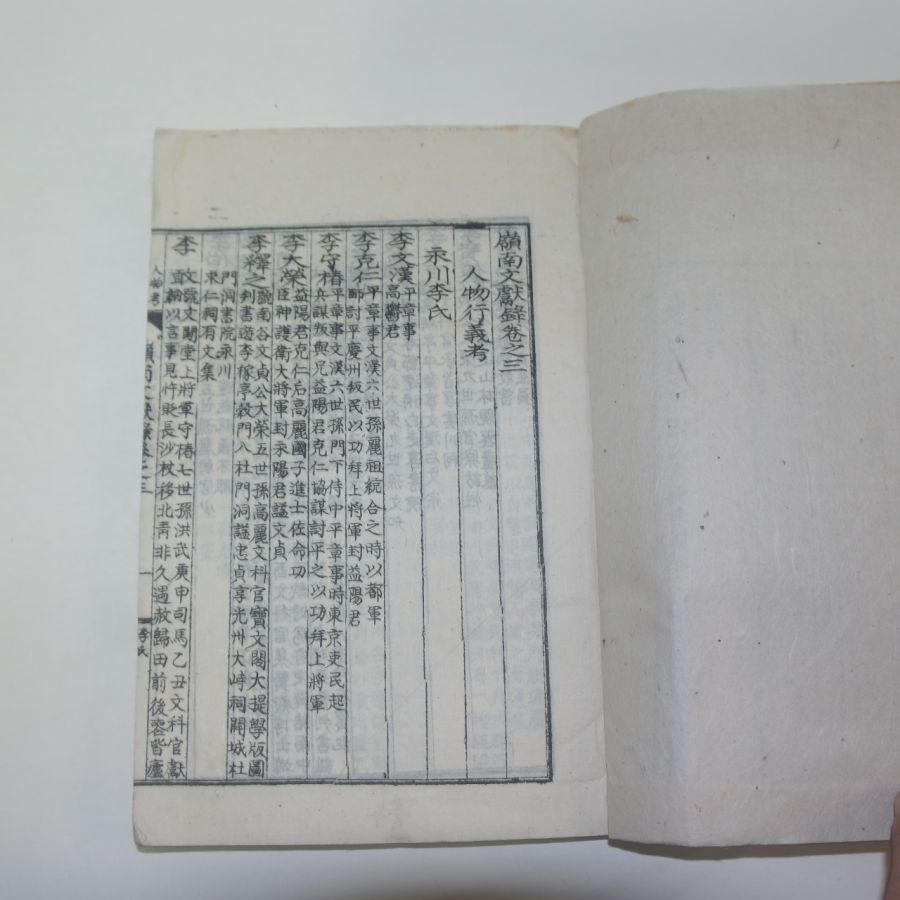 嶺南文獻錄卷之三
人物行義考
永川李氏
李文漢平章事
高鬱君
李克仁平章事文漢六世孫麗祖統合之時以都軍
師討平慶州叛民以功拜上將軍封益陽君
李守椿平章事文漢六世孫門下侍中平章事時東京吏民起
兵謀叛與兄益陽君克仁協謀討平之以功拜上將軍
李大榮益陽君克仁后高麗國子進士佐命功
臣神護衛大將軍封永陽君諡文貞
李釋之號南谷文貞公大榮五世孫高麗文科官寶文閣大提學版圖
判書遊李稼亭穀門入杜門洞諡忠貞享光州大峙祠開城杜
門洞書院永川
東仁祠有文集
李敢號文閣堂上將軍守椿七世孫洪武庚申司馬乙丑文科官獻
納以言事見忤貶長沙杖移北靑非久遇赦歸田前後喪皆廬
人物考
嶺南文獻錄卷之三
一
李氏